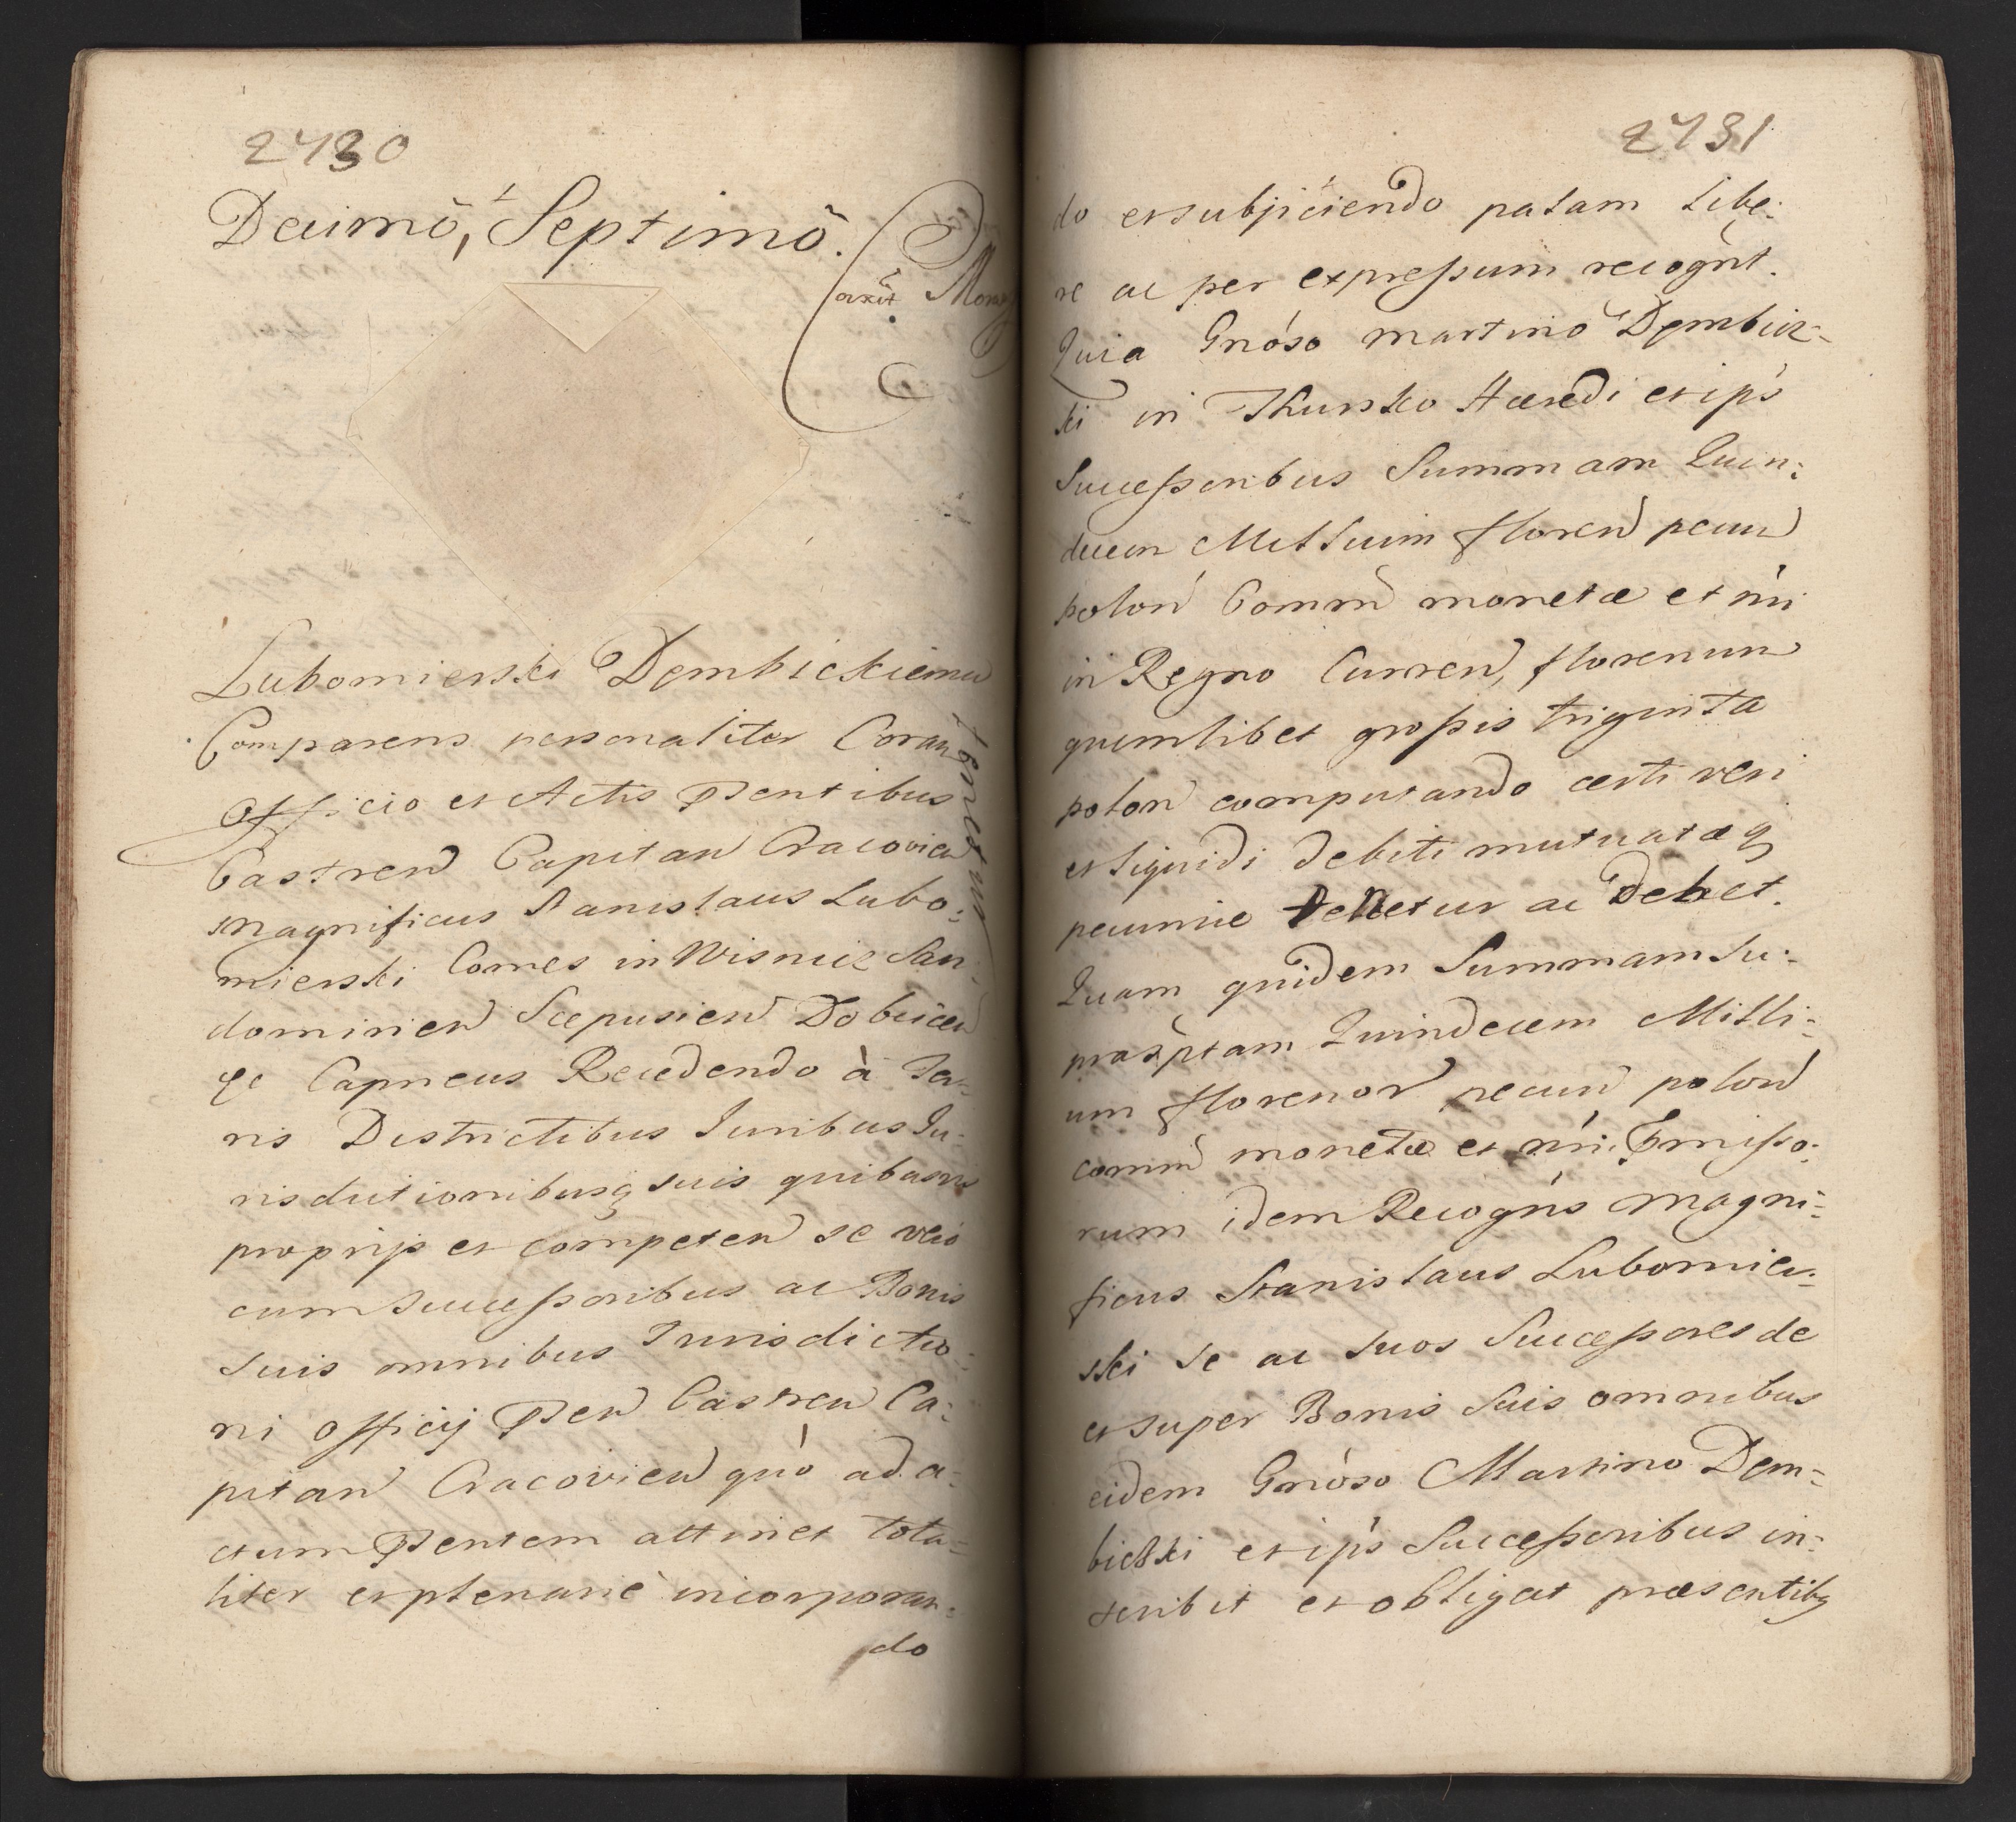 2730
Decimō, Septimō.
Lubomierski Dembickiemu
tenetur
Comparens personaliter Coram
Officio et Actis Pntibus
Castren Capitan Cracovien
Magnificus Stanislaus Lubo:
mierski Comes in Wisnicz San:
domirien Scepusien Dobcicen
&c Capneus Recedendo à Ter:
ris Districtibus Juribus Ju:
risdictionibusq suis quibusvis
proprijs et competen se vero
cum Successoribus ac Bonis
suis omnibus Jurisdictio:
ni Officij Psen Castren Ca:
pitan Cracovien quò ad a:
ctum Psentem attinet tota:
liter et plenariè incorporan:
do
2731
do et subjiciendo palam libe:
re ac per expressum recognt.
Quia Gnóso Martino Dembic:
ki in Thursko Hæredi et ips
Successoribus Summam Quin:
decem Millium floren pecun
polon Commn monetæ et nri
in Regno Curren, florenum
quemlibet grossis triginta
polon computando certi veri
et liquidi debiti mutuatæq
pecuniæ tenetur ac Debet.
Quam quidem Summam su:
prasptam Quindecem Milli:
um florenor pecun polon
commn monetæ et nri. Pmisso:
rum idem Recogns Magni:
ficus Stanislaus Lubomier:
ski se ac suos Successores de
et super Bonis suis omnibus
eidem Gnóso Martino Dem:
bicski et ips Successoribus in:
scribit et obligat præsentibq